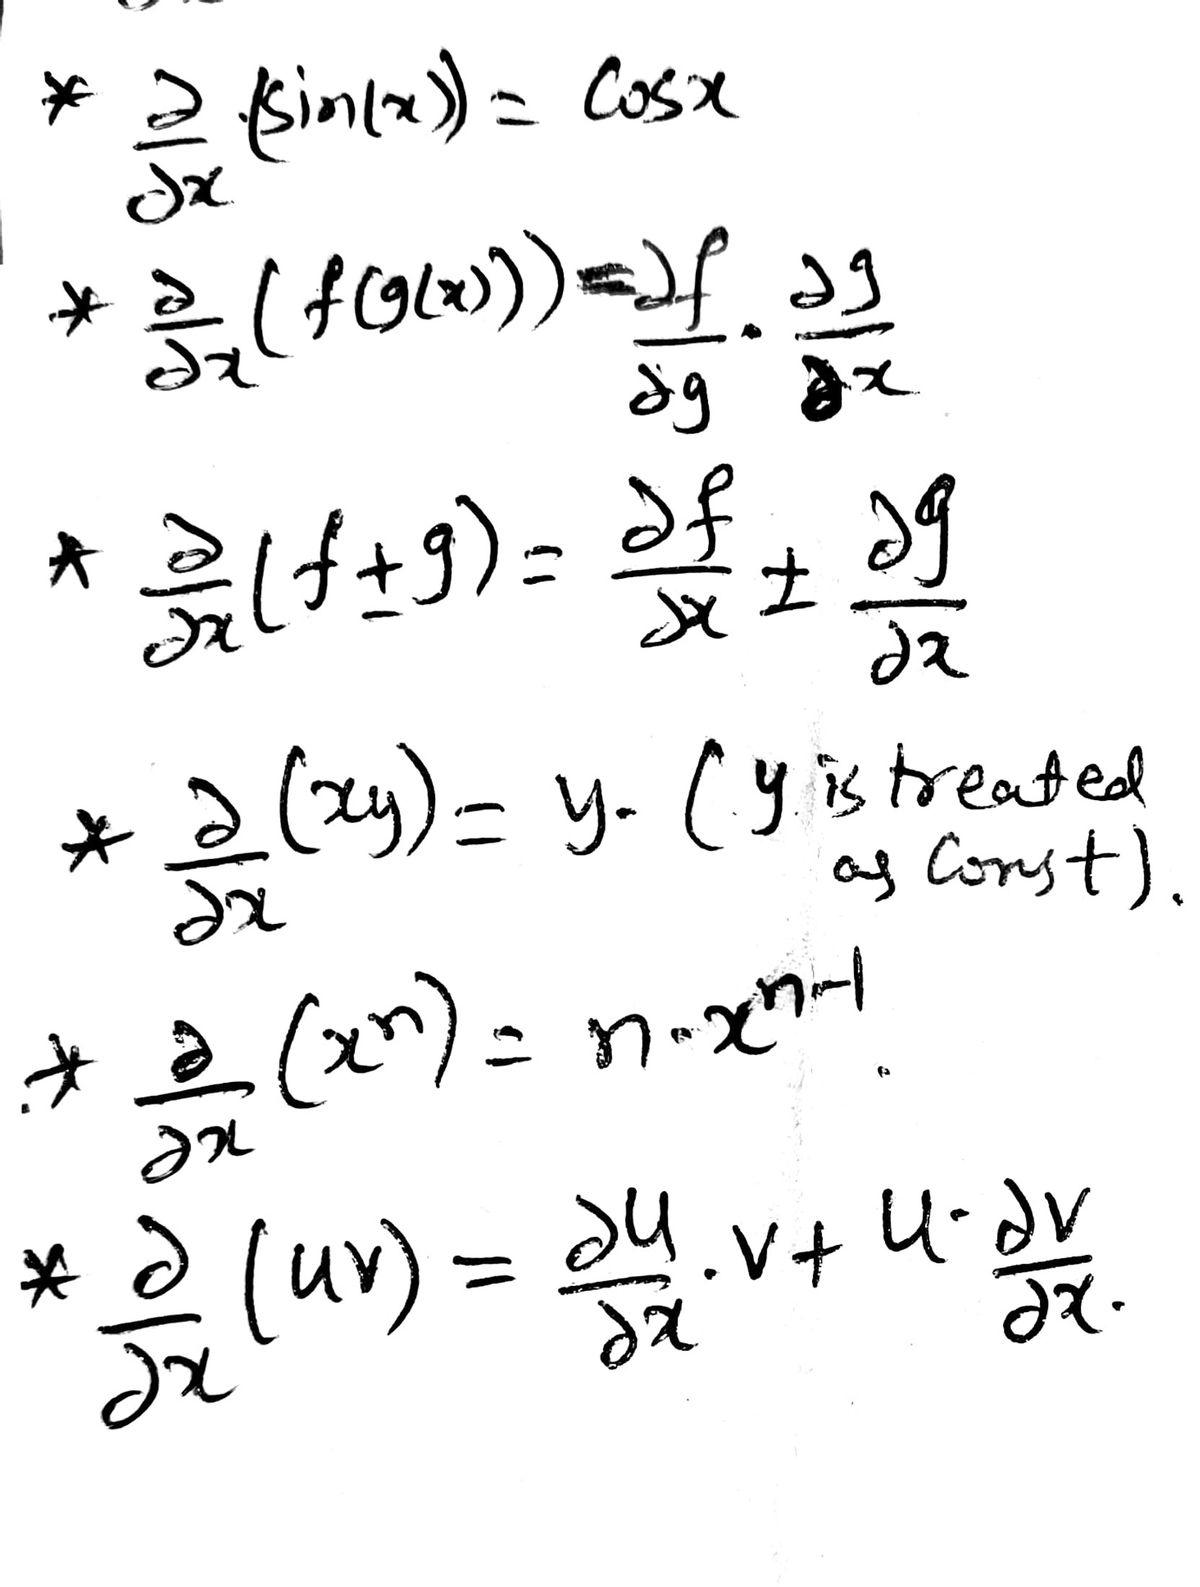 * ∂/∂x (sin(x)) = Cosx
* ∂/∂x (f(g(x))) = ∂f/∂g . ∂g/∂x
* ∂/∂x (f ± g) = ∂f/∂x ± ∂g/∂x
* ∂/∂x (xy) = y. (y is treated
as Const).
* ∂/∂x (xⁿ) = n.xⁿ⁻¹.
* ∂/∂x (uv) = ∂u/∂x . v + u . ∂v/∂x.